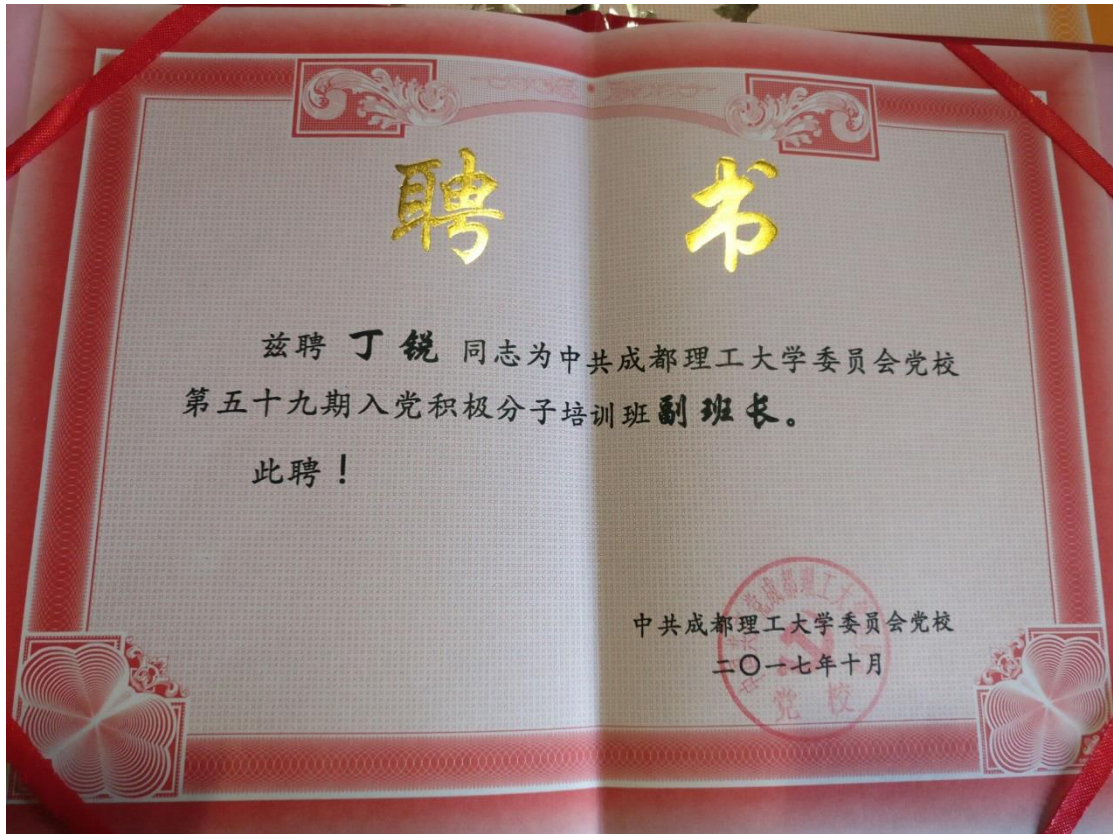 聘 书
兹聘 丁锐 同志为中共成都理工大学委员会党校
第五十九期入党积极分子培训班副班长。
此聘！
中共成都理工大学委员会党校
二〇一七年十月
党校